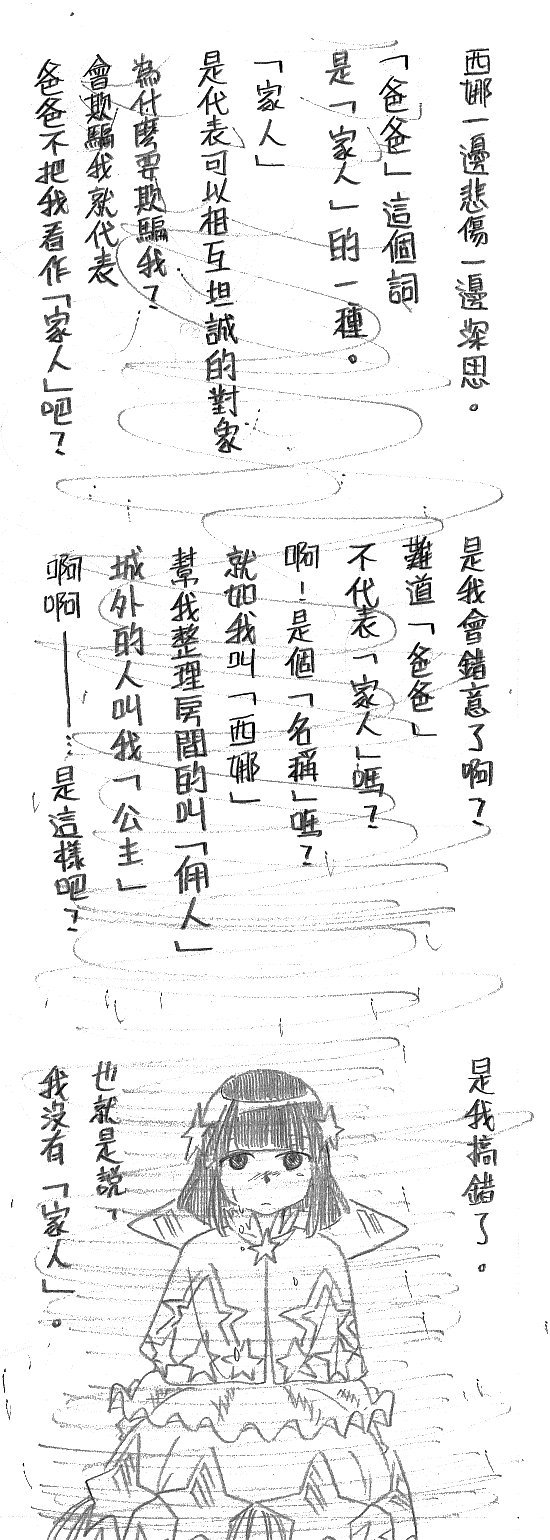 西娜一邊悲傷一邊深思。
「爸爸」這個詞
是「家人」的一種。
「家人」
是代表可以相互坦誠的對象
為什麼要欺騙我？
會欺騙我就代表
爸爸不把我看作「家人」吧？
是我會錯意了啊？
難道「爸爸」
不代表「家人」嗎？
啊！是個「名稱」嗎？
就如我叫「西娜」
幫我整理房間的叫「佣人」
城外的人叫我「公主」
啊啊——…是這樣吧？
是我搞錯了。
也就是說，
我沒有「家人」。